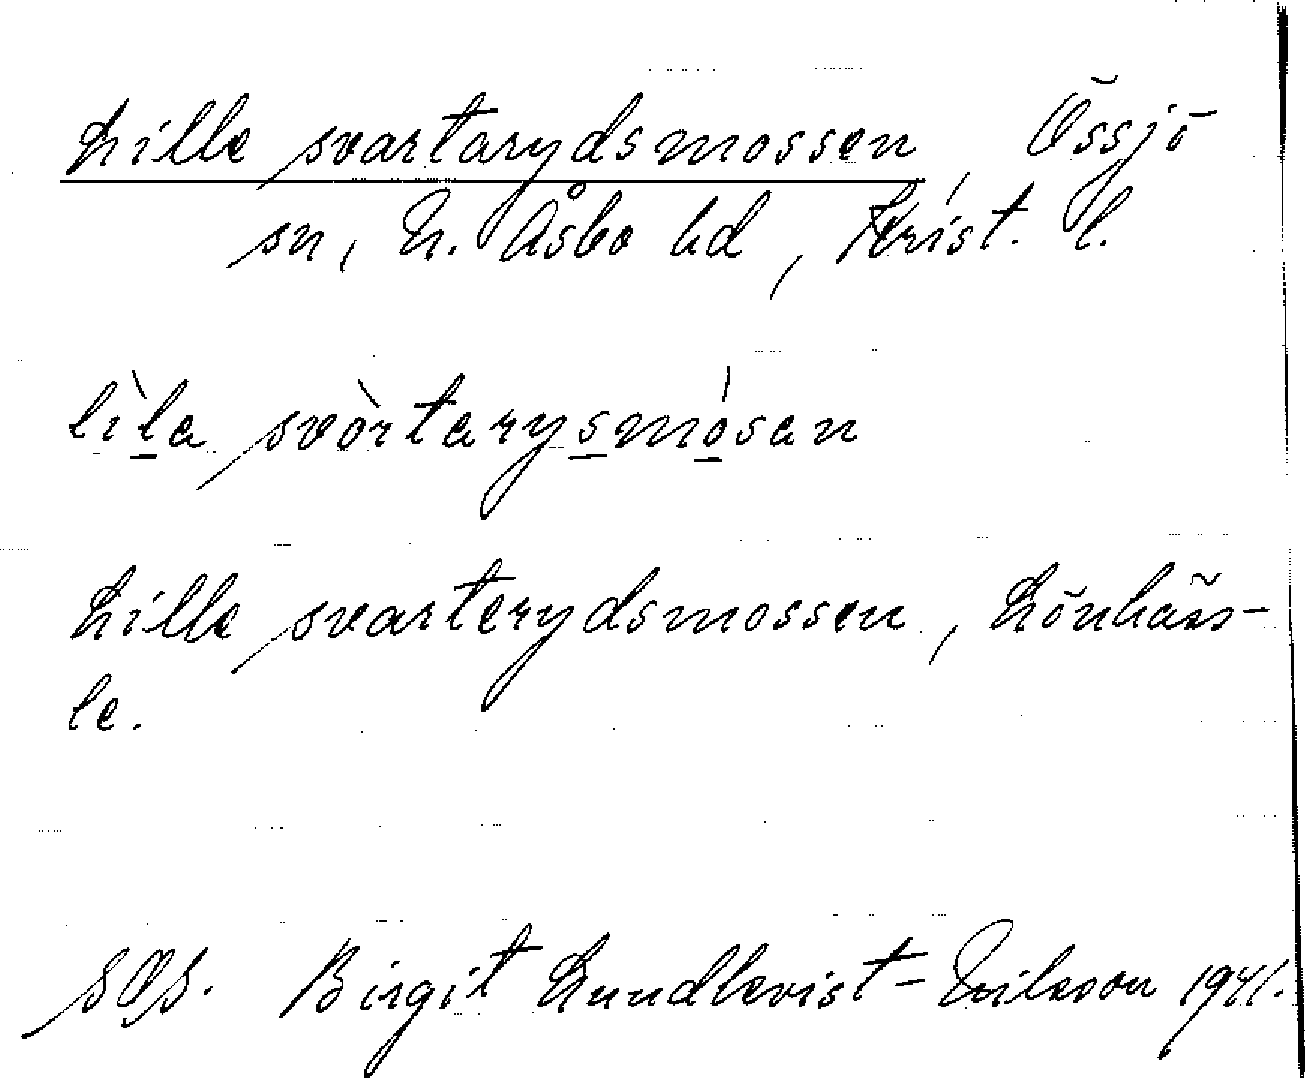 Lille svartarydsmossen, Össjö
sn, N. Åsbo hd, Krist. l.
lìla svòrtarysmósan
Lille svarterydsmossen, Lönhäss-
le.
Birgit Lundkvist-Nilsson 1941.